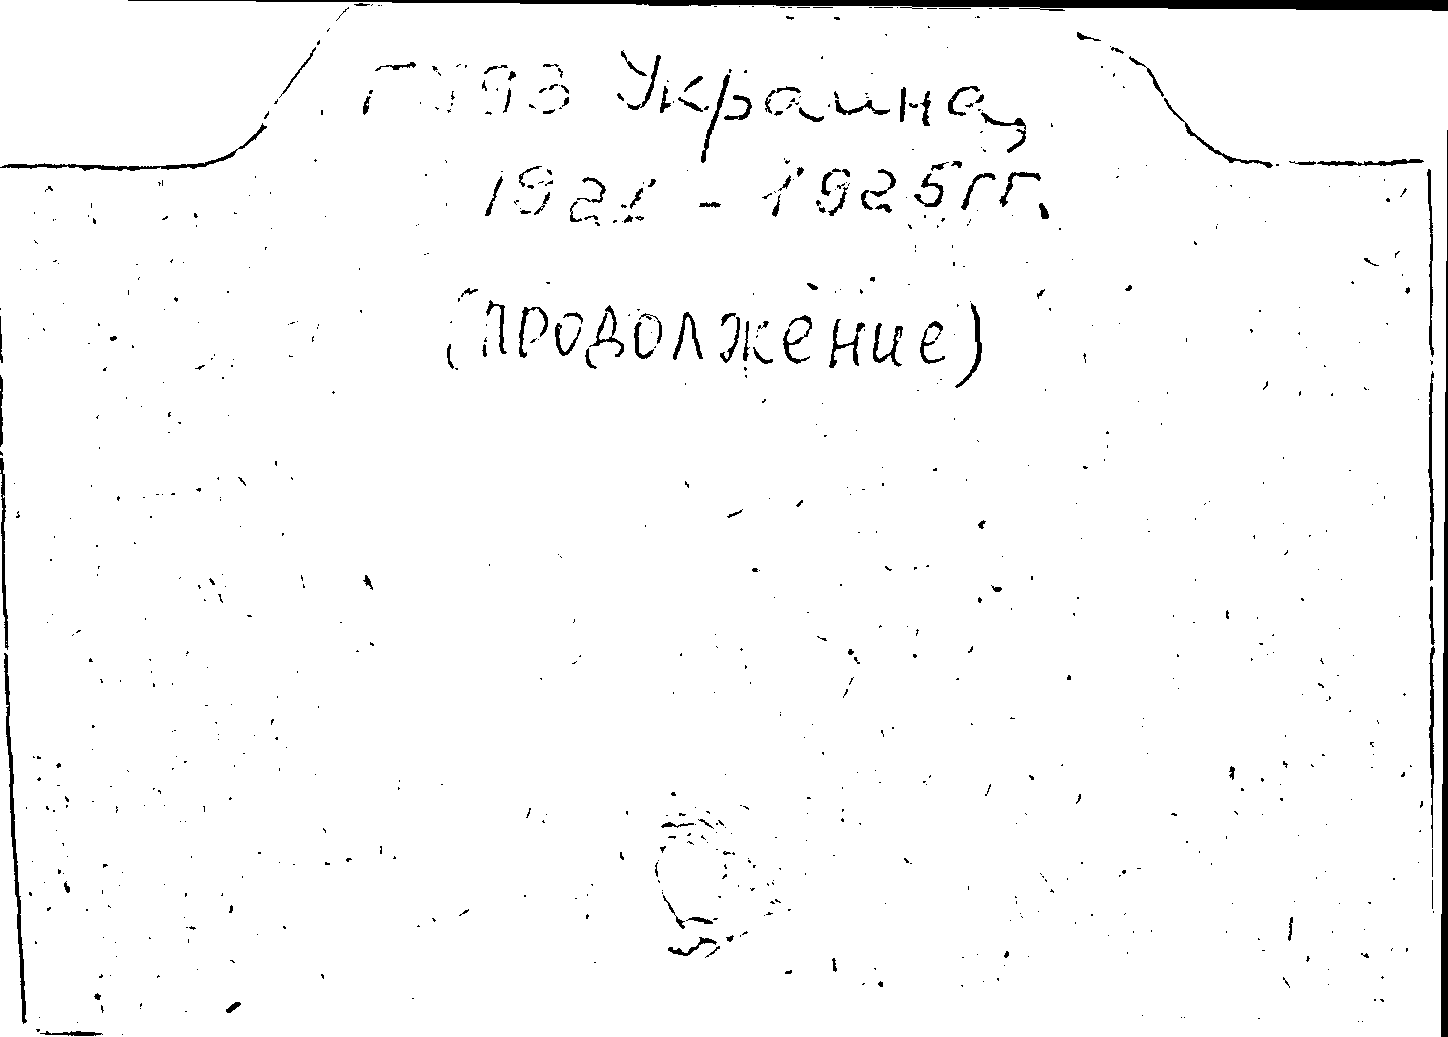 Украина,
1921 - 1925гг.
(продолжение)